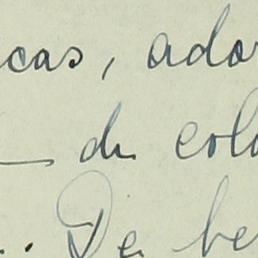 cas, ado
— de cola
.. De be